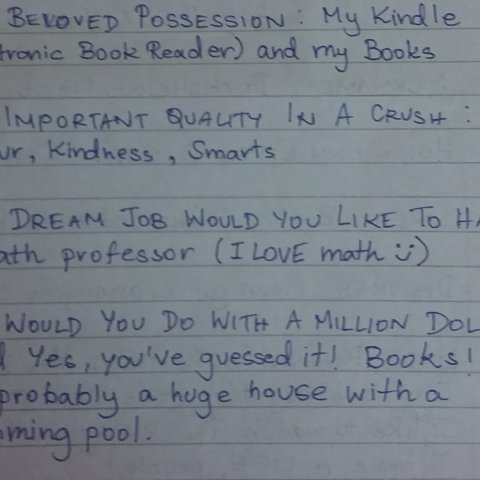 BELOVED POSSESSION : My Kindle
tronic Book Reader) and my Books
IMPORTANT QUALITY IN A CRUSH :
ur, Kindness, Smarts
DREAM JOB WOULD YOU LIKE TO HA
ath professor (I LOVE math :)
WOULD YOU DO WITH A MILLION DOL
Yes, you've guessed it! Books!
probably a huge house with a
ming pool.